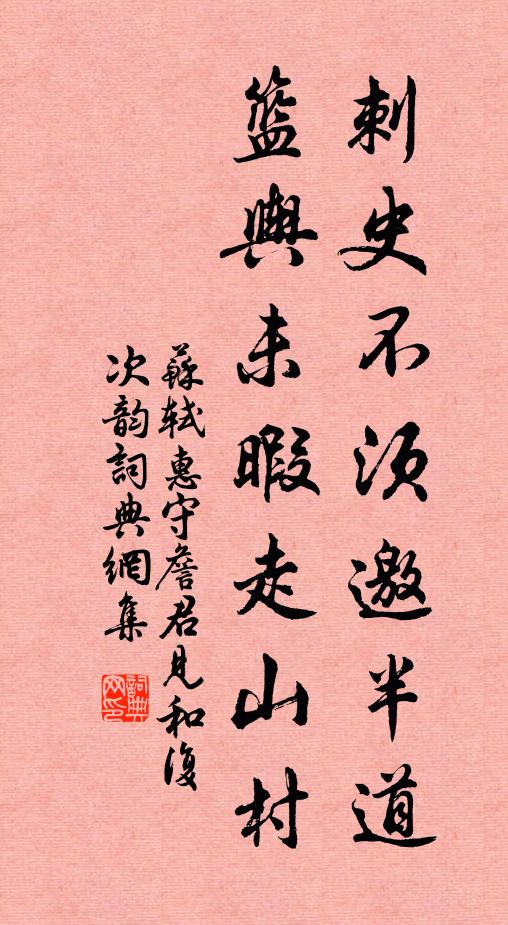 刺史不須邀半道
籃輿未暇走山村
蘇軾惠守詹君見和復
次韵詞典網集
詞典网印